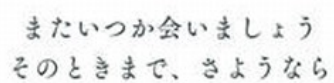 またいつか会いましょう
そのときまで、さようなら